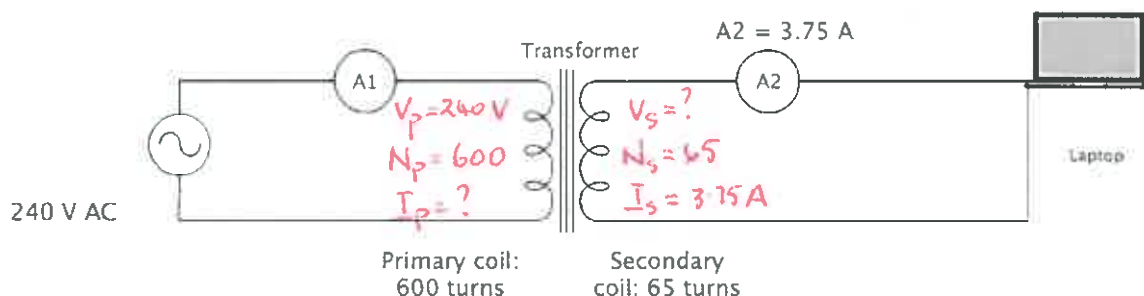 A2 = 3.75 A
Transformer
A1
A2
Vp = 240 V
Np = 600
Ip = ?
Vs = ?
Ns = 65
Is = 3.75 A
Laptop
240 V AC
Primary coil:
600 turns
Secondary
coil: 65 turns